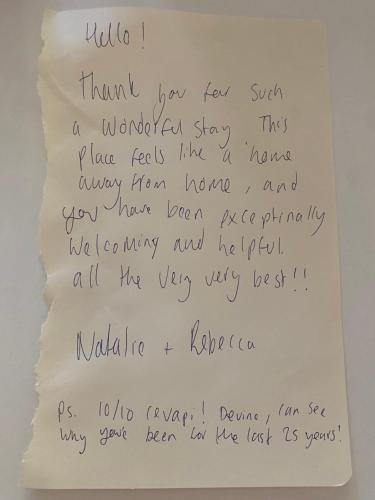 Hello!
Thank you for such
a wonderful stay This
place feels like a home
away from home, and
you have been exceptinally
welcoming and helpful.
all the very very best!!
Natalie + Rebecca
Ps. 10/10 cevapi! Devine, can see
why you've been for the last 25 years!